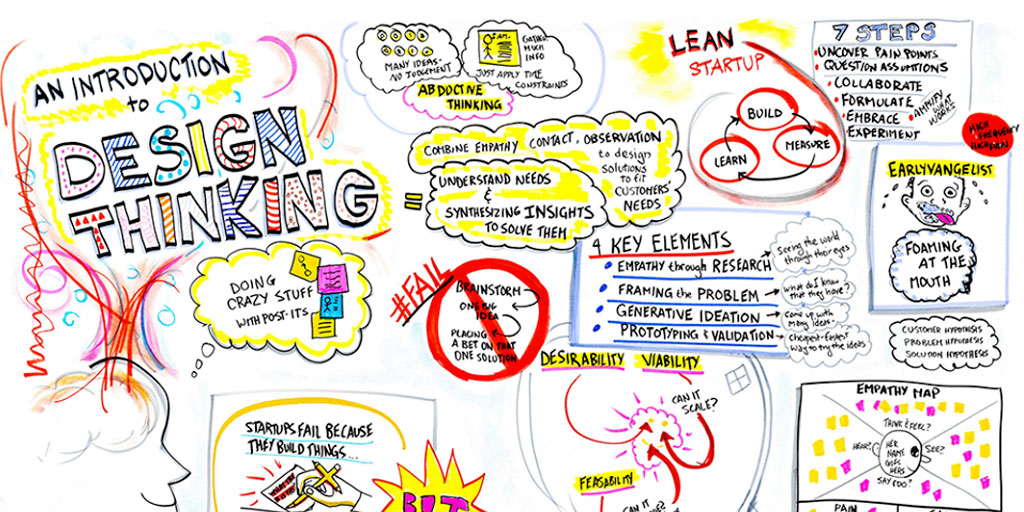 AN INTRODUCTION
to
DESIGN
THINKING
=
DOING
CRAZY STUFF
WITH POST-ITS
MANY IDEAS-
NO JUDGEMENT
GATHER
MUCH
INFO
JUST APPLY TIME
CONSTRAINTS
ABDUCTIVE
THINKING
COMBINE EMPATHY CONTACT, OBSERVATION
to design
SOLUTIONS
TO FIT
CUSTOMERS'
NEEDS
UNDERSTAND NEEDS
&
SYNTHESIZING INSIGHTS
TO SOLVE THEM
#FAIL
BRAINSTORM
ONE BIG
IDEA
PLACING
A BET ON THAT
ONE SOLUTION
LEAN
STARTUP
BUILD
MEASURE
LEARN
7 STEPS
UNCOVER PAIN POINTS
QUESTION ASSUMPTIONS
COLLABORATE
FORMULATE
EMBRACE
EXPERIMENT
AMPLIFY
WHAT
WORKS
HIGH
FREQUENCY
EARLYVANGELIST
FOAMING
AT THE
MOUTH
4 KEY ELEMENTS
EMPATHY through RESEARCH
Seeing the world
through their eyes
FRAMING the PROBLEM
What do I know
that they have?
GENERATIVE IDEATION
Come up with
many ideas.
PROTOTYPING & VALIDATION
Cheapest-Easiest
Way to try the ideas
CUSTOMER HYPOTHESIS
PROBLEM HYPOTHESIS
SOLUTION HYPOTHESIS
DESIRABILITY VIABILITY
CAN IT
SCALE?
FEASABILITY
CAN IT
STARTUPS FAIL BECAUSE
THEY BUILD THINGS...
BUT
EMPATHY MAP
THINK & FEEL?
HEAR?
HER
NAME
GOES
HERE
SEE?
SAY & DO?
PAIN